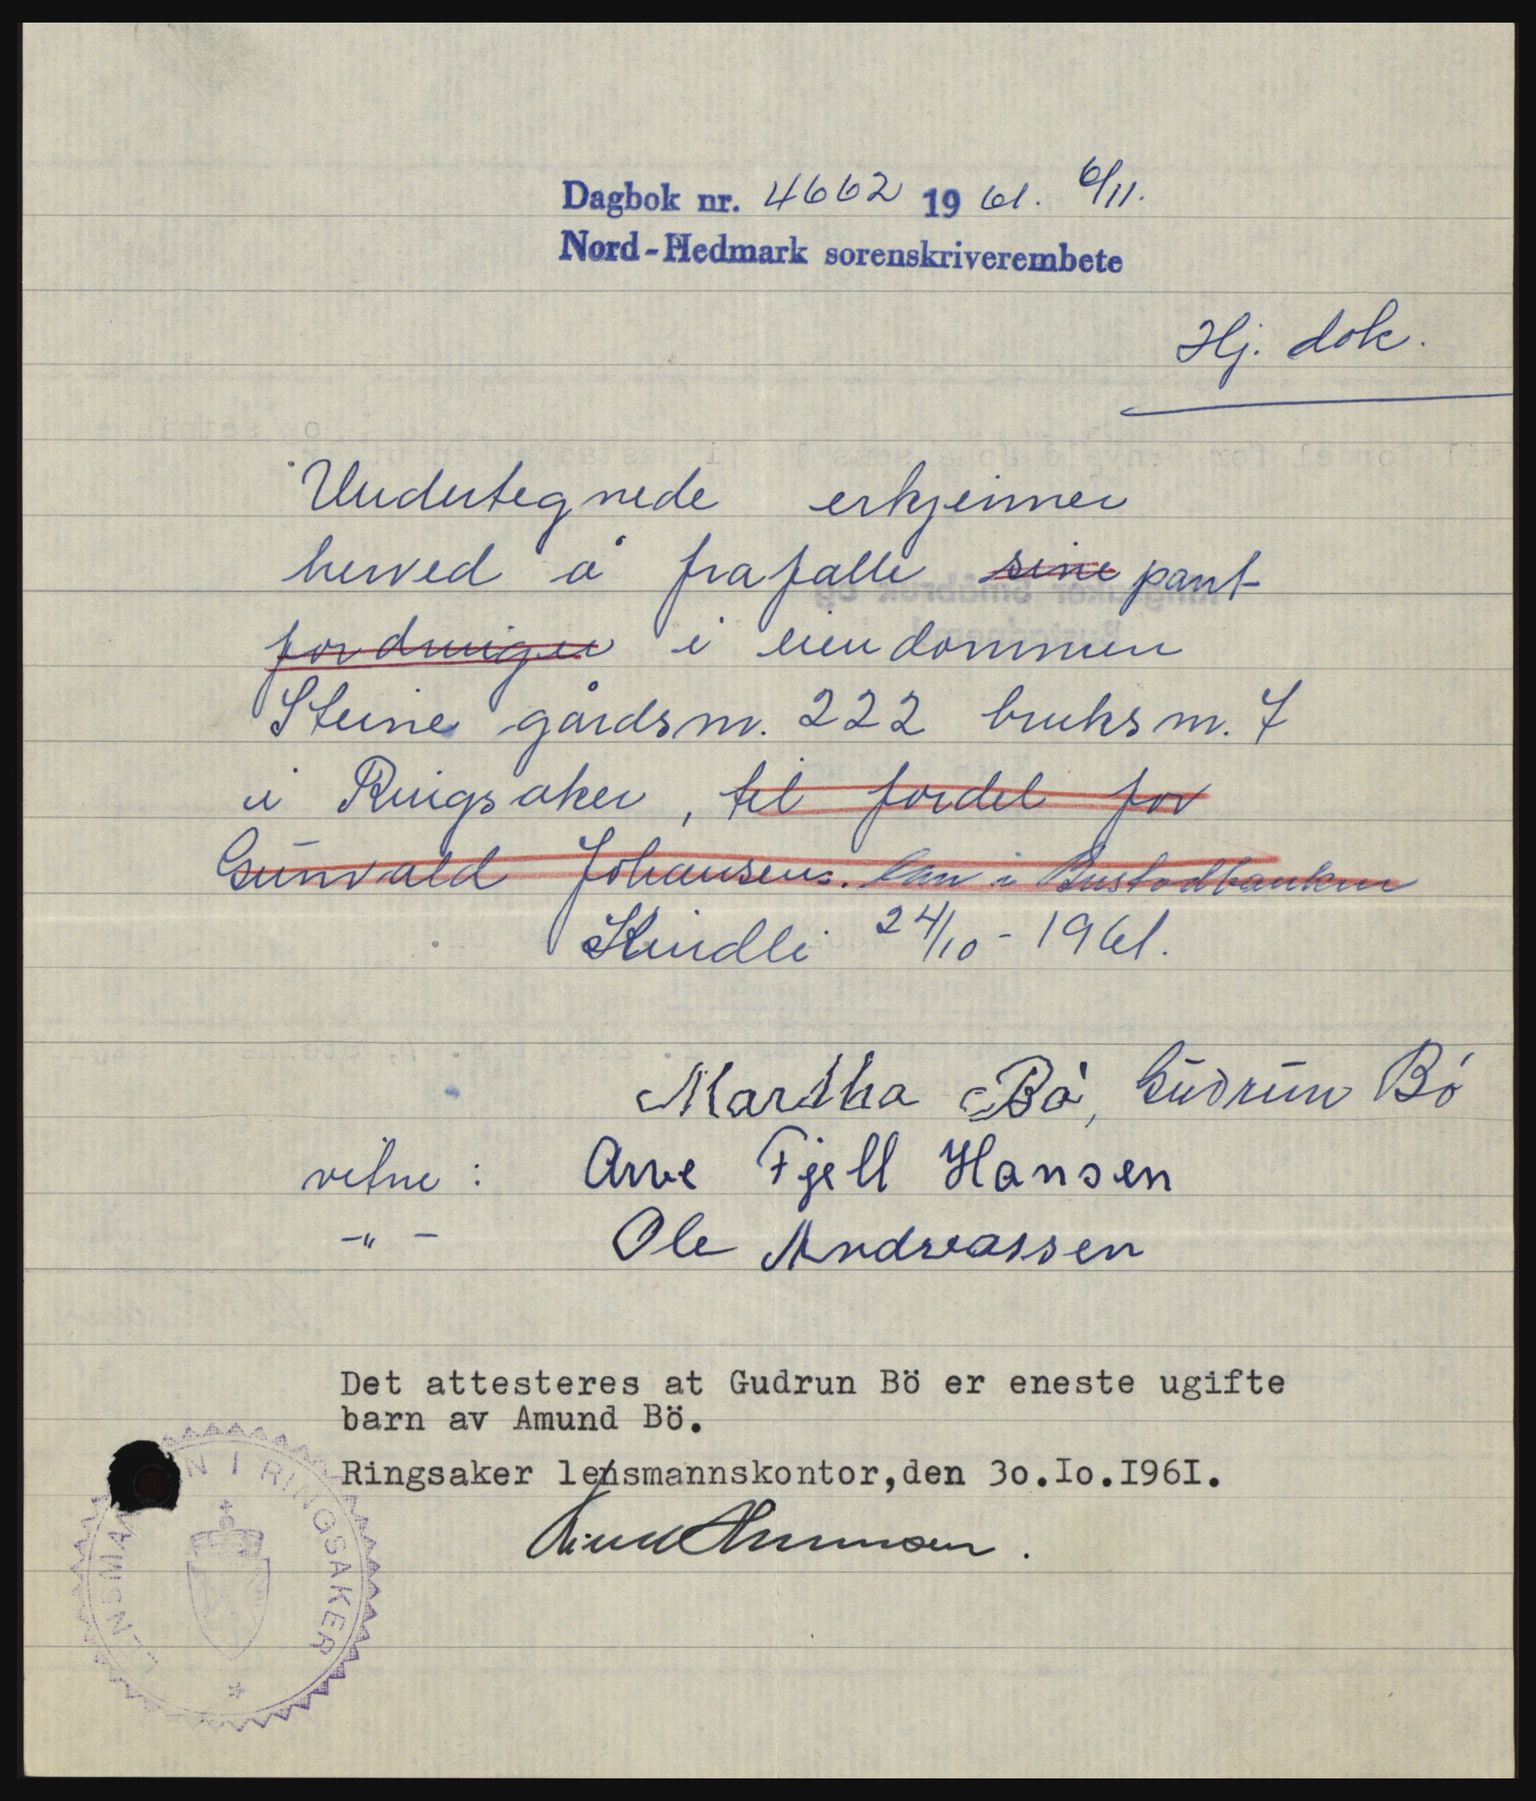 Dagbok nr. 4662 1961. 6/11.
Nord-Hedmark sorenskriverembete
Hj. dok.
Undertegnede erkjenner
herved å frafalle sine pant
fordringer i eiendommen
Steine gårdsnr. 222 bruksnr. 7
i Ringsaker, til fordel for
Gunvald Johansens. lån i Bustadbanken
Kindli 24/10 - 1961.
Martha Bö, Gudrun Bö
vitne : Arve Fjell Hansen
-"- Ole Andreassen
Det attesteres at Gudrun Bö er eneste ugifte
barn av Amund Bö.
Ringsaker lensmannskontor,den 3o.Io.I96I.
LENSMANNEN I RINGSAKER